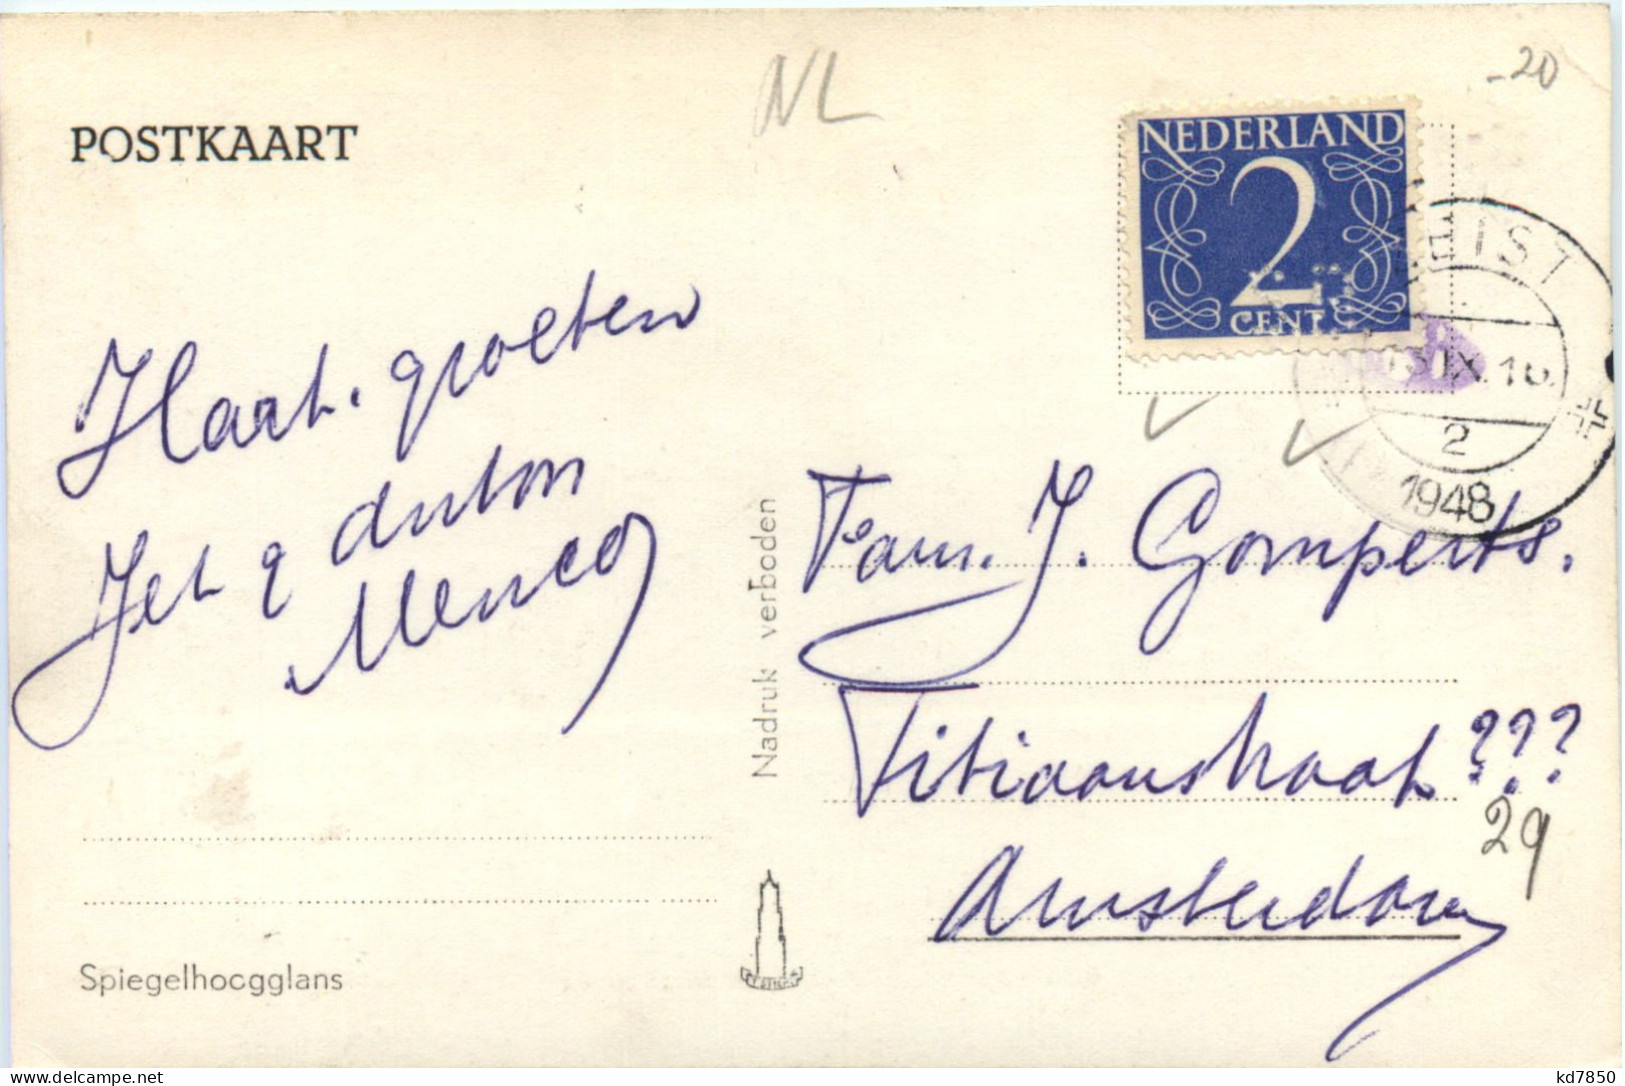 NL
-20
POSTKAART
NEDERLAND
2
CENT
ZEIST
13 IX 16
2
1948
Hart. groeten
Jet & Anton
Menco
Fam. J. Gomperts.
Titiaanstraat ???
29
Amsterdam
Nadruk verboden
Spiegelhoogglans
kd7850